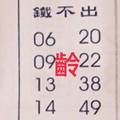 鐵不出
06 20
09 22
齡
13 38
14 49